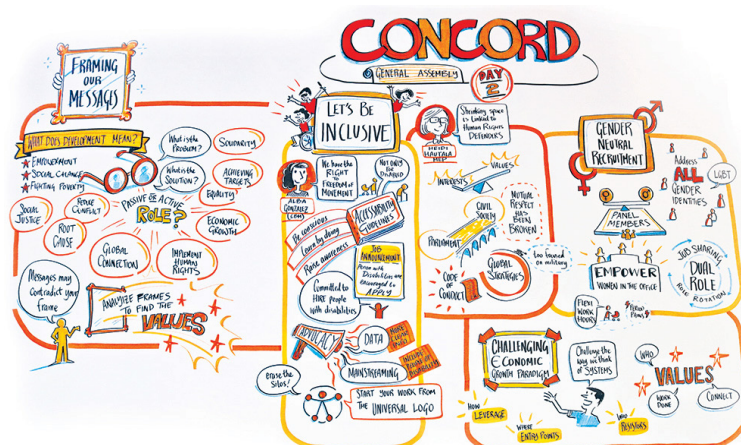 CONCORD
GENERAL ASSEMBLY
DAY
2
FRAMING
OUR
MESSAGES
WHAT DOES DEVELOPMENT MEAN?
EMPOWERMENT
SOCIAL CHANGE
FIGHTING POVERTY
What is the
PROBLEM?
What is the
SOLUTION?
SOLIDARITY
ACHIEVING
TARGETS
EQUALITY
ECONOMIC
GROWTH
IMPLEMENT
HUMAN
RIGHTS
GLOBAL
CONNECTION
ROOT
CAUSE
CONFLICT
SOCIAL
JUSTICE
PASSIVE OR ACTIVE
ROLE?
Messages may
contradict your
frame
ANALYZE FRAMES
TO FIND THE
VALUES
LET'S BE
INCLUSIVE
We have the
RIGHT
to
FREEDOM of
MOVEMENT
NOT ONLY
the DISABLED
ALBA
GONZALEZ
CBM
ACCESSIBILITY
GUIDELINES
Be conscious
Learn by doing
Raise awareness
JOB
ANNOUNCEMENT
Person with
Disabilities are
encouraged to
APPLY
Committed to
HIRE people
with disabilities
ADVOCACY
DATA
MAINSTREAMING
erase the
Silos!
START YOUR WORK FROM
THE UNIVERSAL LOGO
Shrinking space
is linked to
Human Rights
DEFENDERS
HEIDI
HAUTALA
MEP
VALUES
INTERESTS
CIVIL
SOCIETY
PARLIAMENT
MUTUAL
RESPECT
HAS
BEEN
BROKEN
CODE OF
CONDUCT
GLOBAL
STRATEGIES
too focused
on military
GENDER
NEUTRAL
RECRUITMENT
Address
ALL
GENDER
IDENTITIES
LGBT
PANEL
MEMBERS
EMPOWER
WOMEN IN THE OFFICE
JOB SHARING
DUAL
ROLE
ROLE ROTATION
FLEXI
WORK
HOURS
CHALLENGING
ECONOMIC
GROWTH PARADIGM
Challenge the
way we think
of SYSTEMS
HOW
LEVERAGE
WHERE
ENTRY POINTS
WHO
RESISTORS
WHO
VALUES
WORK
DONE
CONNECT